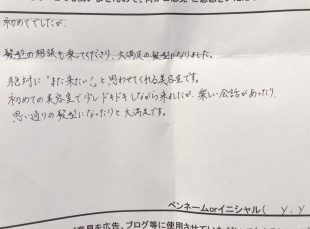 初めてでしたが、
髪型の相談も乗ってくださり、大満足の髪型になりました。
絶対に「また来たい!」と思わせてくれる美容室です。
初めての美容室で少しドキドキしながら来れたが、楽しい会話があったり、
思い通りの髪型になったりと大満足です。
ペンネームorイニシャル( Y.Y
意見を広告、ブログ等に使用させていた